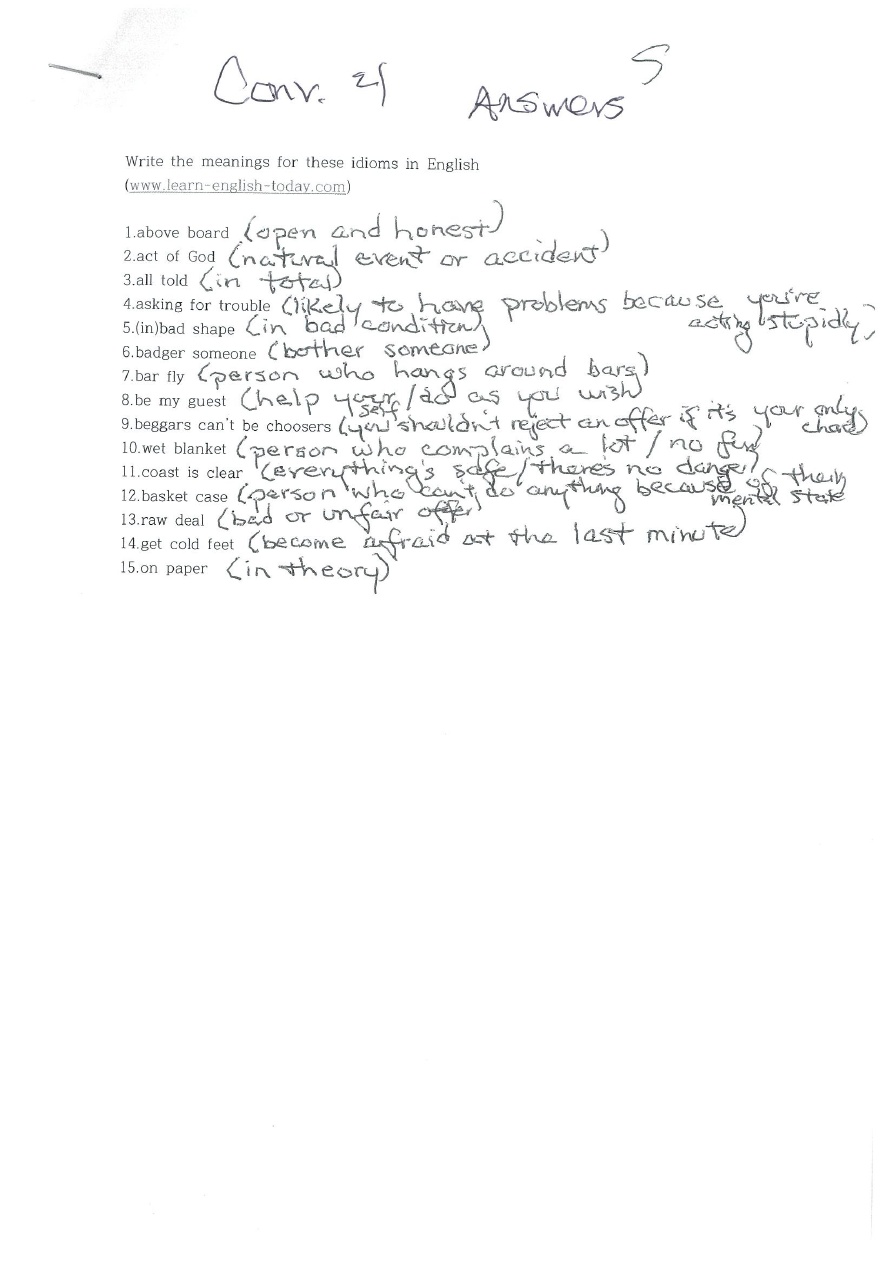 Conv. 21 Answers S
Write the meanings for these idioms in English
(www.learn-english-today.com)
1.above board (open and honest)
2.act of God (natural event or accident)
3.all told (in total)
4.asking for trouble (likely to have problems because you're acting stupidly)
5.(in)bad shape (in bad condition)
6.badger someone (bother someone)
7.bar fly (person who hangs around bars)
8.be my guest (help yourself/do as you wish
9.beggars can't be choosers (you shouldn't reject an offer if it's your only choice)
10.wet blanket (person who complains a lot / no fun)
11.coast is clear (everything's safe/there's no danger)
12.basket case (person who can't do anything because of their mental state
13.raw deal (bad or unfair offer)
14.get cold feet (become afraid at the last minute)
15.on paper (in theory)